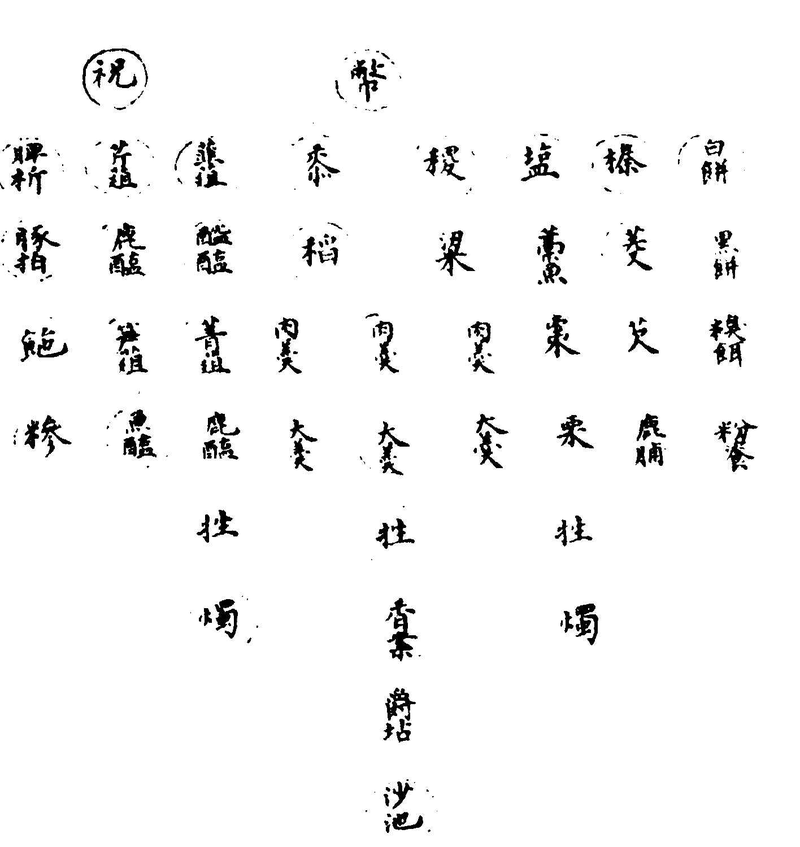 祝 幣
脾析 芹葅 韮葅 黍 稷 塩 榛 白餅
豚拍 鹿醢 醓醢 稻 粱 藁魚 菱 黒餅
鉋 笋葅 菁葅 肉羹 肉羹 肉羹 棗 芡 糗餌
糝 魚醢 鹿醢 大羹 大羹 大羹 栗 鹿脯 粉餈
牲 牲 牲
燭 香案 燭
爵坫
沙池